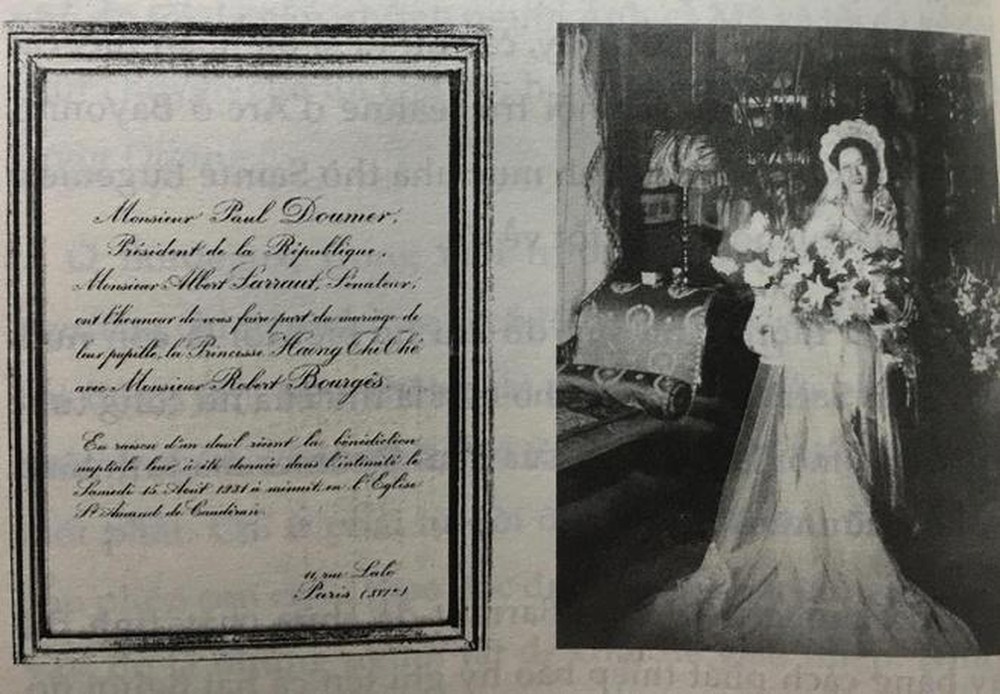 Monsieur Paul Doumer,
Président de la République,
Monsieur Albert Sarraut, Sénateur,
ont l'honneur de vous faire part du mariage de
leur pupille, la Princesse Haong Chi Ché
avec Monsieur Robert Bourgès.
En raison d'un deuil récent la bénédiction
nuptiale leur a été donnée dans l'intimité le
Samedi 15 Août 1931 à minuit, en l'Eglise
St Amand de Caudéran.
11, rue Lalo
Paris (XVIe)